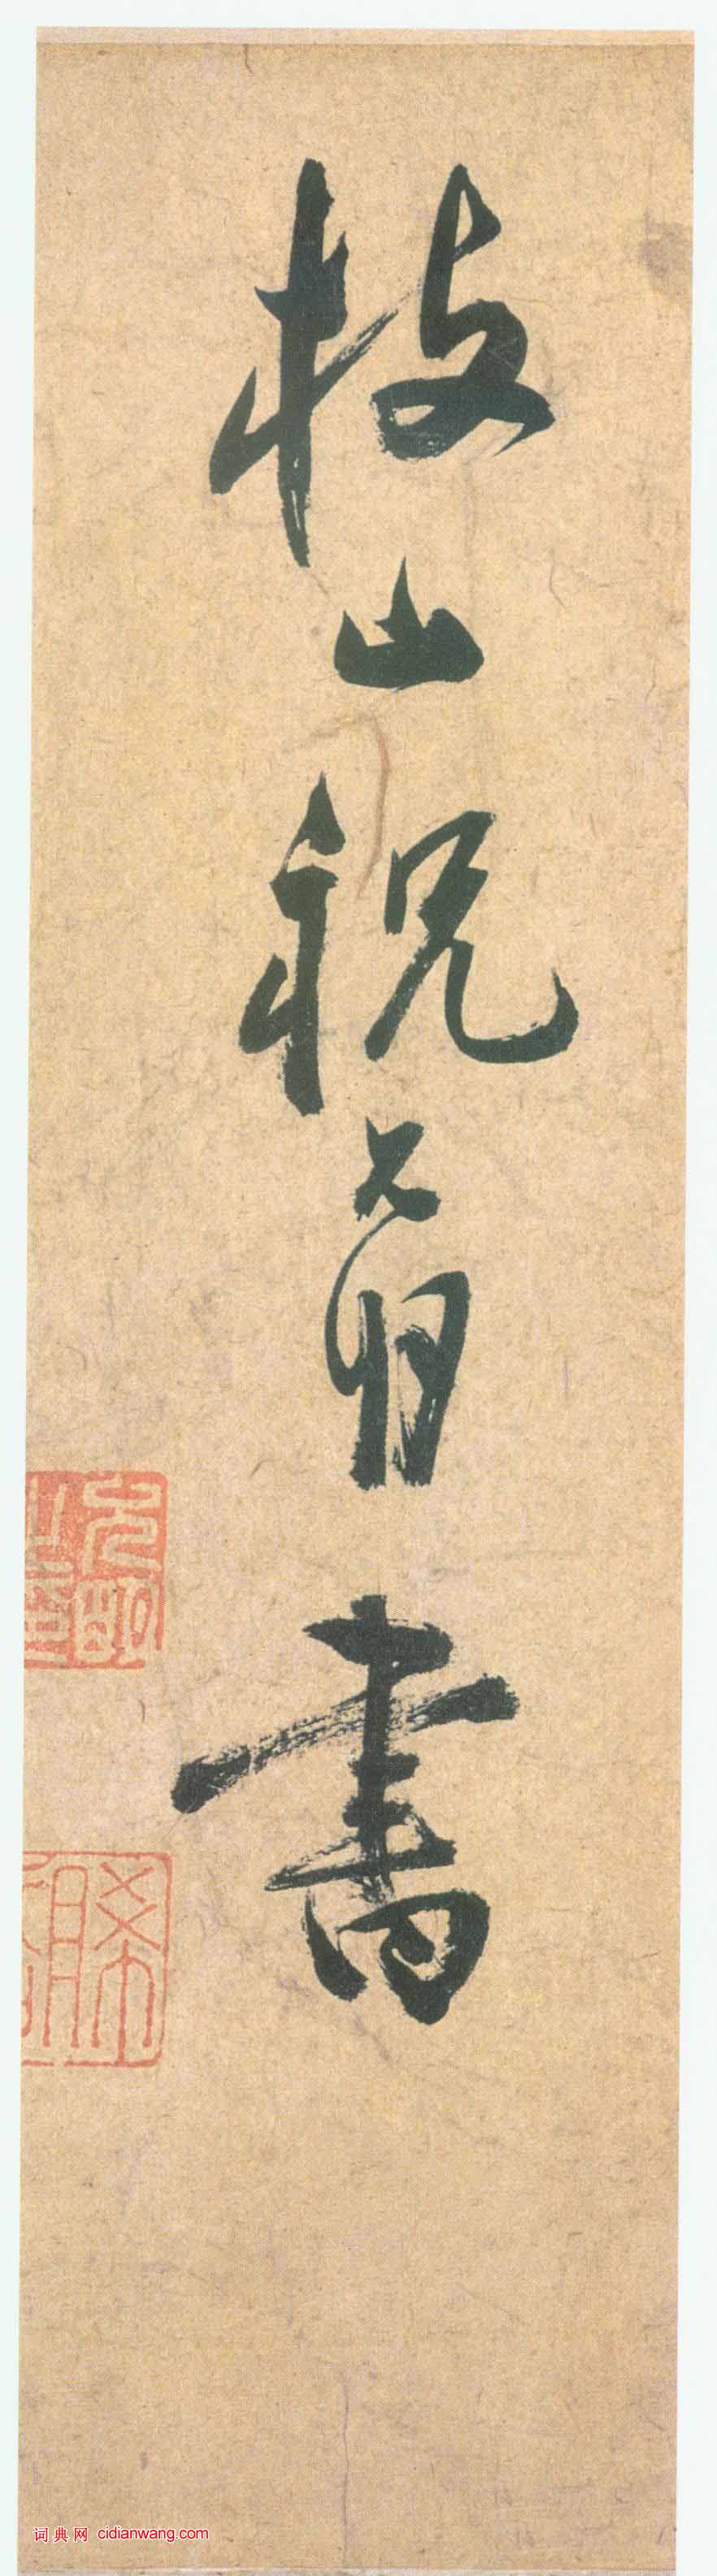 枝山祝允明書
词典网 cidianwang.com